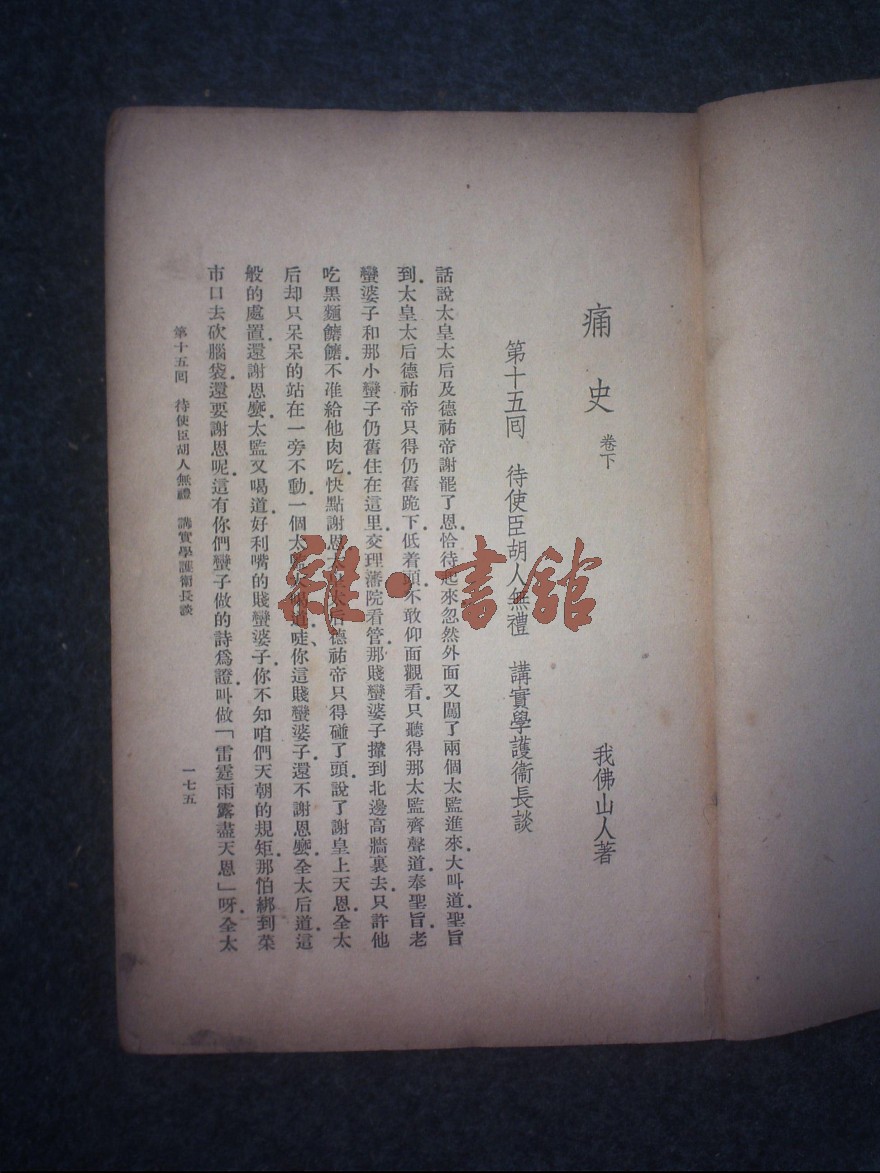 痛史 卷下
我佛山人著
第十五囘 待使臣胡人無禮 講實學護衞長談
話說太皇太后及德祐帝謝罷了恩恰待起來忽然外面又闖了兩個太監進來大叫道聖旨
到太皇太后德祐帝只得仍舊跪下低着頭不敢仰面觀看只聽得那太監齊聲道奉聖旨老
蠻婆子和那小蠻子仍舊住在這里交理藩院看管那賤蠻婆子攆到北邊高牆裏去只許他
吃黑麵饝饝不准給他肉吃快點謝恩太皇太后德祐帝只得碰了頭說了謝皇上天恩全太
后却只呆呆的站在一旁不動一個太監大喝道哇你這賤蠻婆子還不謝恩麽全太后道這
般的處置還謝恩麽太監又喝道好利嘴的賤蠻婆子你不知咱們天朝的規矩那怕綁到菜
市口去砍腦袋還要謝恩呢這有你們蠻子做的詩爲證叫做「雷霆雨露盡天恩」呀全太
第十五囘 待使臣胡人無禮 講實學護衞長談 一七五
雜·書館